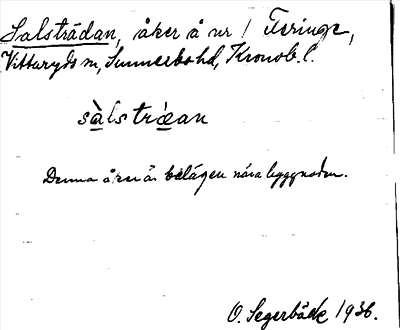 Salsträdan, åker å nr 1 Feringe,
Vittaryds sn, Sunnerbo hd, Kronob. l.
sàlstræ̀an
Denna åker är belägen nära byggnaden.
O. Segerbäck 1936.